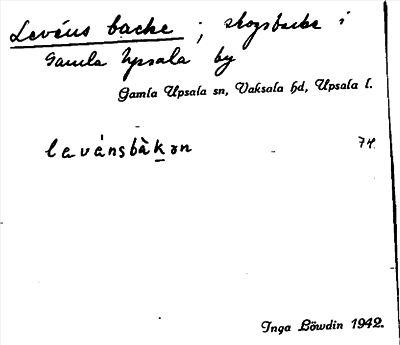 Levéus backe ; skogsbacke i
Gamla Upsala by
Gamla Upsala sn, Vaksala hd, Upsala l.
lavánsbàkən 74
Inga Löwdin 1942.